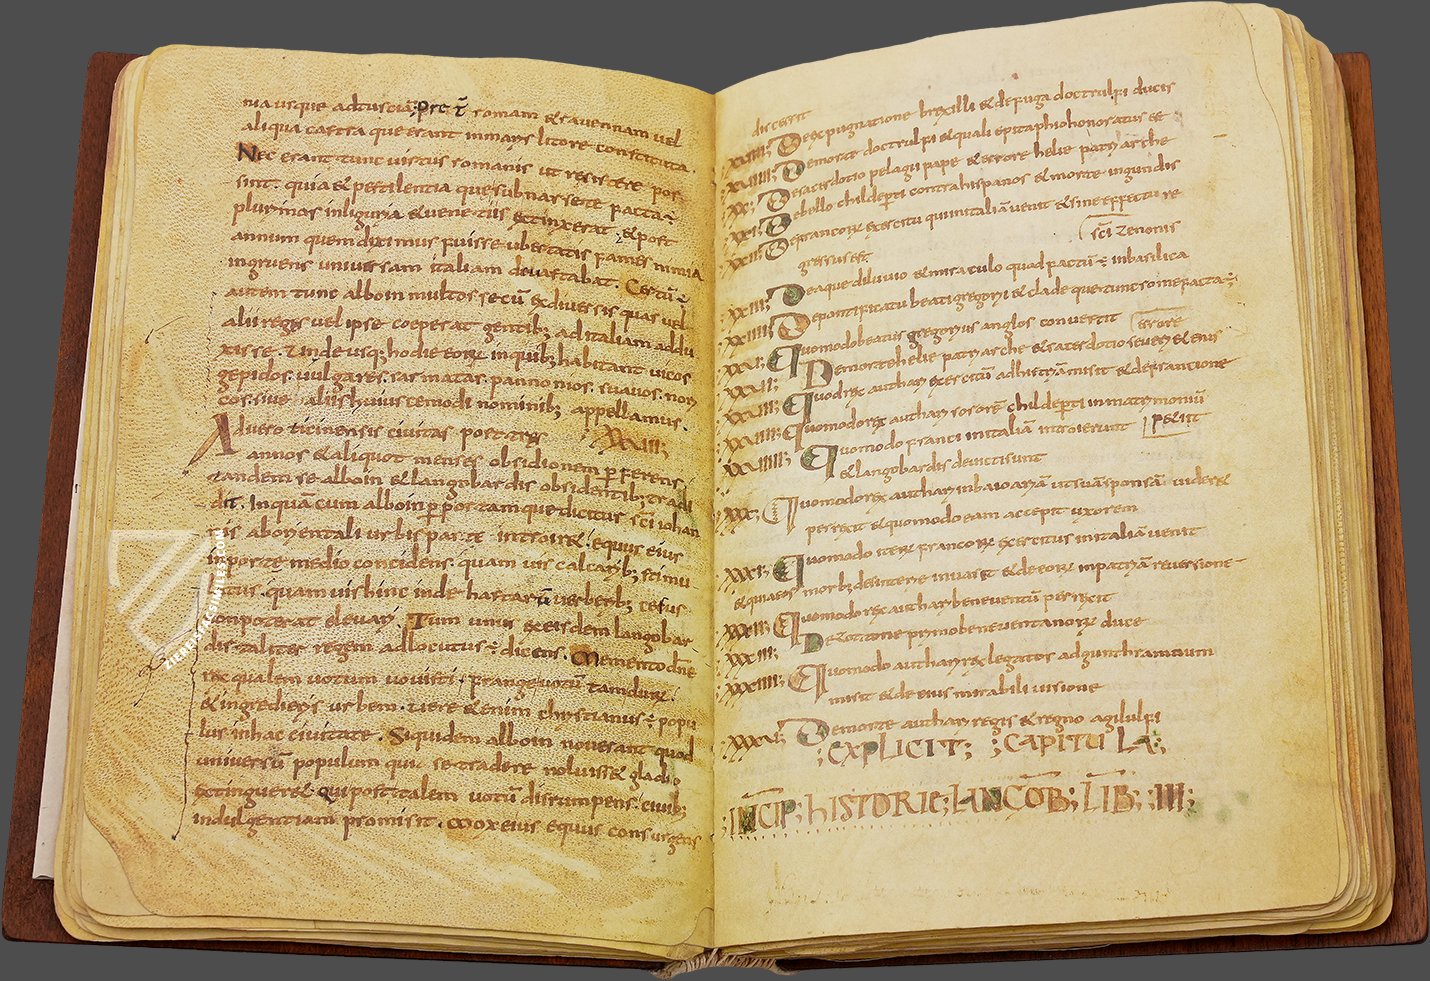 nia usque ad tusciã; pret̃ romam & rauennam uel
aliqua castra que erant in maris litore constituta.
Nec erant tunc uirtus romanis ut resistere pos
sint. quia & pestilentia que sub narsete facta ÷
plurimos in liguria & uenetiis extinxerat. & post
annum quem diximus fuisse ubertatis fames nimia
ingruens uniuersam italiam deuastabat. Certũ ÷
autem tunc alboin multos secũ ex diuersis quas uel
alii reges uel ipse coeperat gentib; ad italiam addu
xisse. Unde usq; hodie eorꝝ in quib; habitant uicos
gepidos. uulgares. sarmatas. pannonios. suauos. nori
cos. siue aliis huiuscemodi nominib; appellamus.
At uero ticinensis ciuitas post tres
annos & aliquot menses obsidionem ꝑferens
tandem se alboin & langobardis obsidentib; tradi
dit. In quã cum alboin ꝑ portam que dicitur sc̃i iohan
nis ab orientali urbis parte introir& equus eius
in porte medio concidens. quam uis calcarib; stimu
latus. quam uis hinc inde hastarũ uerberb; cesus
non poterat eleuari. Tum unus ex eisdem langobar
dis taliter regem adlocutus ÷ dicens. Memento dñe
rex qualem uotum uouisti. frange uotũ tam durũ.
& ingredieris urbem. Uere & enim christianus ÷ popu
lus in hac ciuitate. Siquidem alboin nouerant quod
uniuersũ populum quia se tradere noluiss& gladio
extinguer& Qui post talem uotũ disrumpens. ciuib;
indulgentiam promisit. Mox eius equus consurgens
discessit
XVIII; De expugnatione brexilli & de fuga doctrulfi ducis
XVIIII; De morte doctrulfi & quali epitaphio honoratus est
XX; De sacerdotio pelagii pape & errore helie patriarche
XXI; De bello childeperti contra hispanos & morte ingundis
XXII; De francorꝝ exercitu qui in italiã uenit & sine effectu re
gressus est. sc̃i zenonis
XXIII; De aque diluuio & miraculo quod factũ ÷ in basilica
XXIIII; De pontificatu beati gregorii & clade que tunc rome facta ÷;
XXV; Quomodo beatus gregorius anglos conuertit errore
XXVI; De morte helie patriarche & sacerdotio seueri & eius
XXVII; Quod rex authari exercitũ ad histriã misit & de francione
XXVIII; Quomodo rex authari sororẽ childeperti in matrimoniũ
XXVIIII; Quomodo franci in italiã introierunt petiit
& langobardis deuicti sunt
XXX; Quomodo rex authari in baioariã ut suã sponsã uider&
perrexit & quomodo eam accepit uxorem
XXXI; Quomodo iterũ francorꝝ exercitus in italiã uenit
& quia eos morb; desinterie inuasit & de eorꝝ in patriã reuersione
XXXII; Quomodo rex authari beneuentũ perrexit
XXXIII; De zottone primo beneuentanorꝝ duce
XXXIIII; Quomodo authari rex legatos ad gunthramnum
misit & de eius mirabili uisione
XXXV; De morte authari regis & regno agilulfi
; EXPLICIT; ; CAPITULA;
; INCIP; HISTORIE; LANGOB; LIB; III;